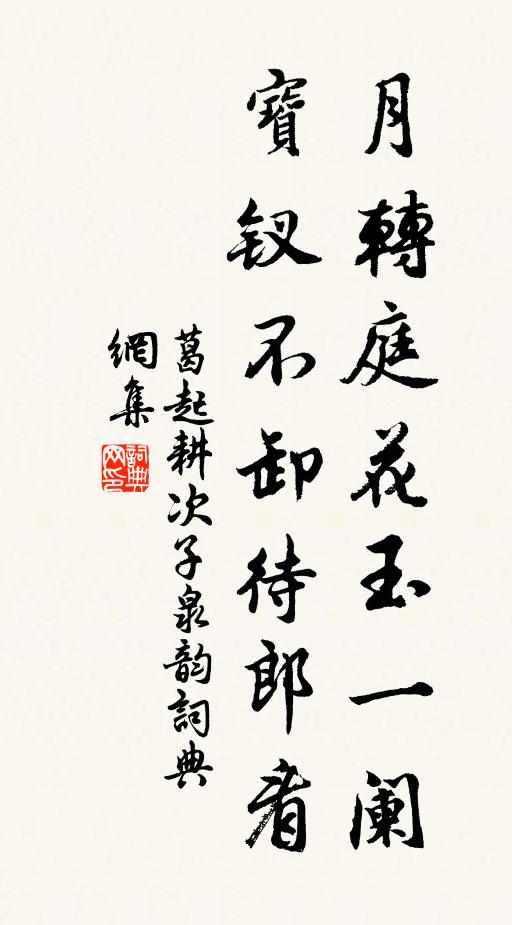 月轉庭花玉一阑
寶钗不卸待郎看
葛起耕次子泉韵詞典
網集
詞典
网印